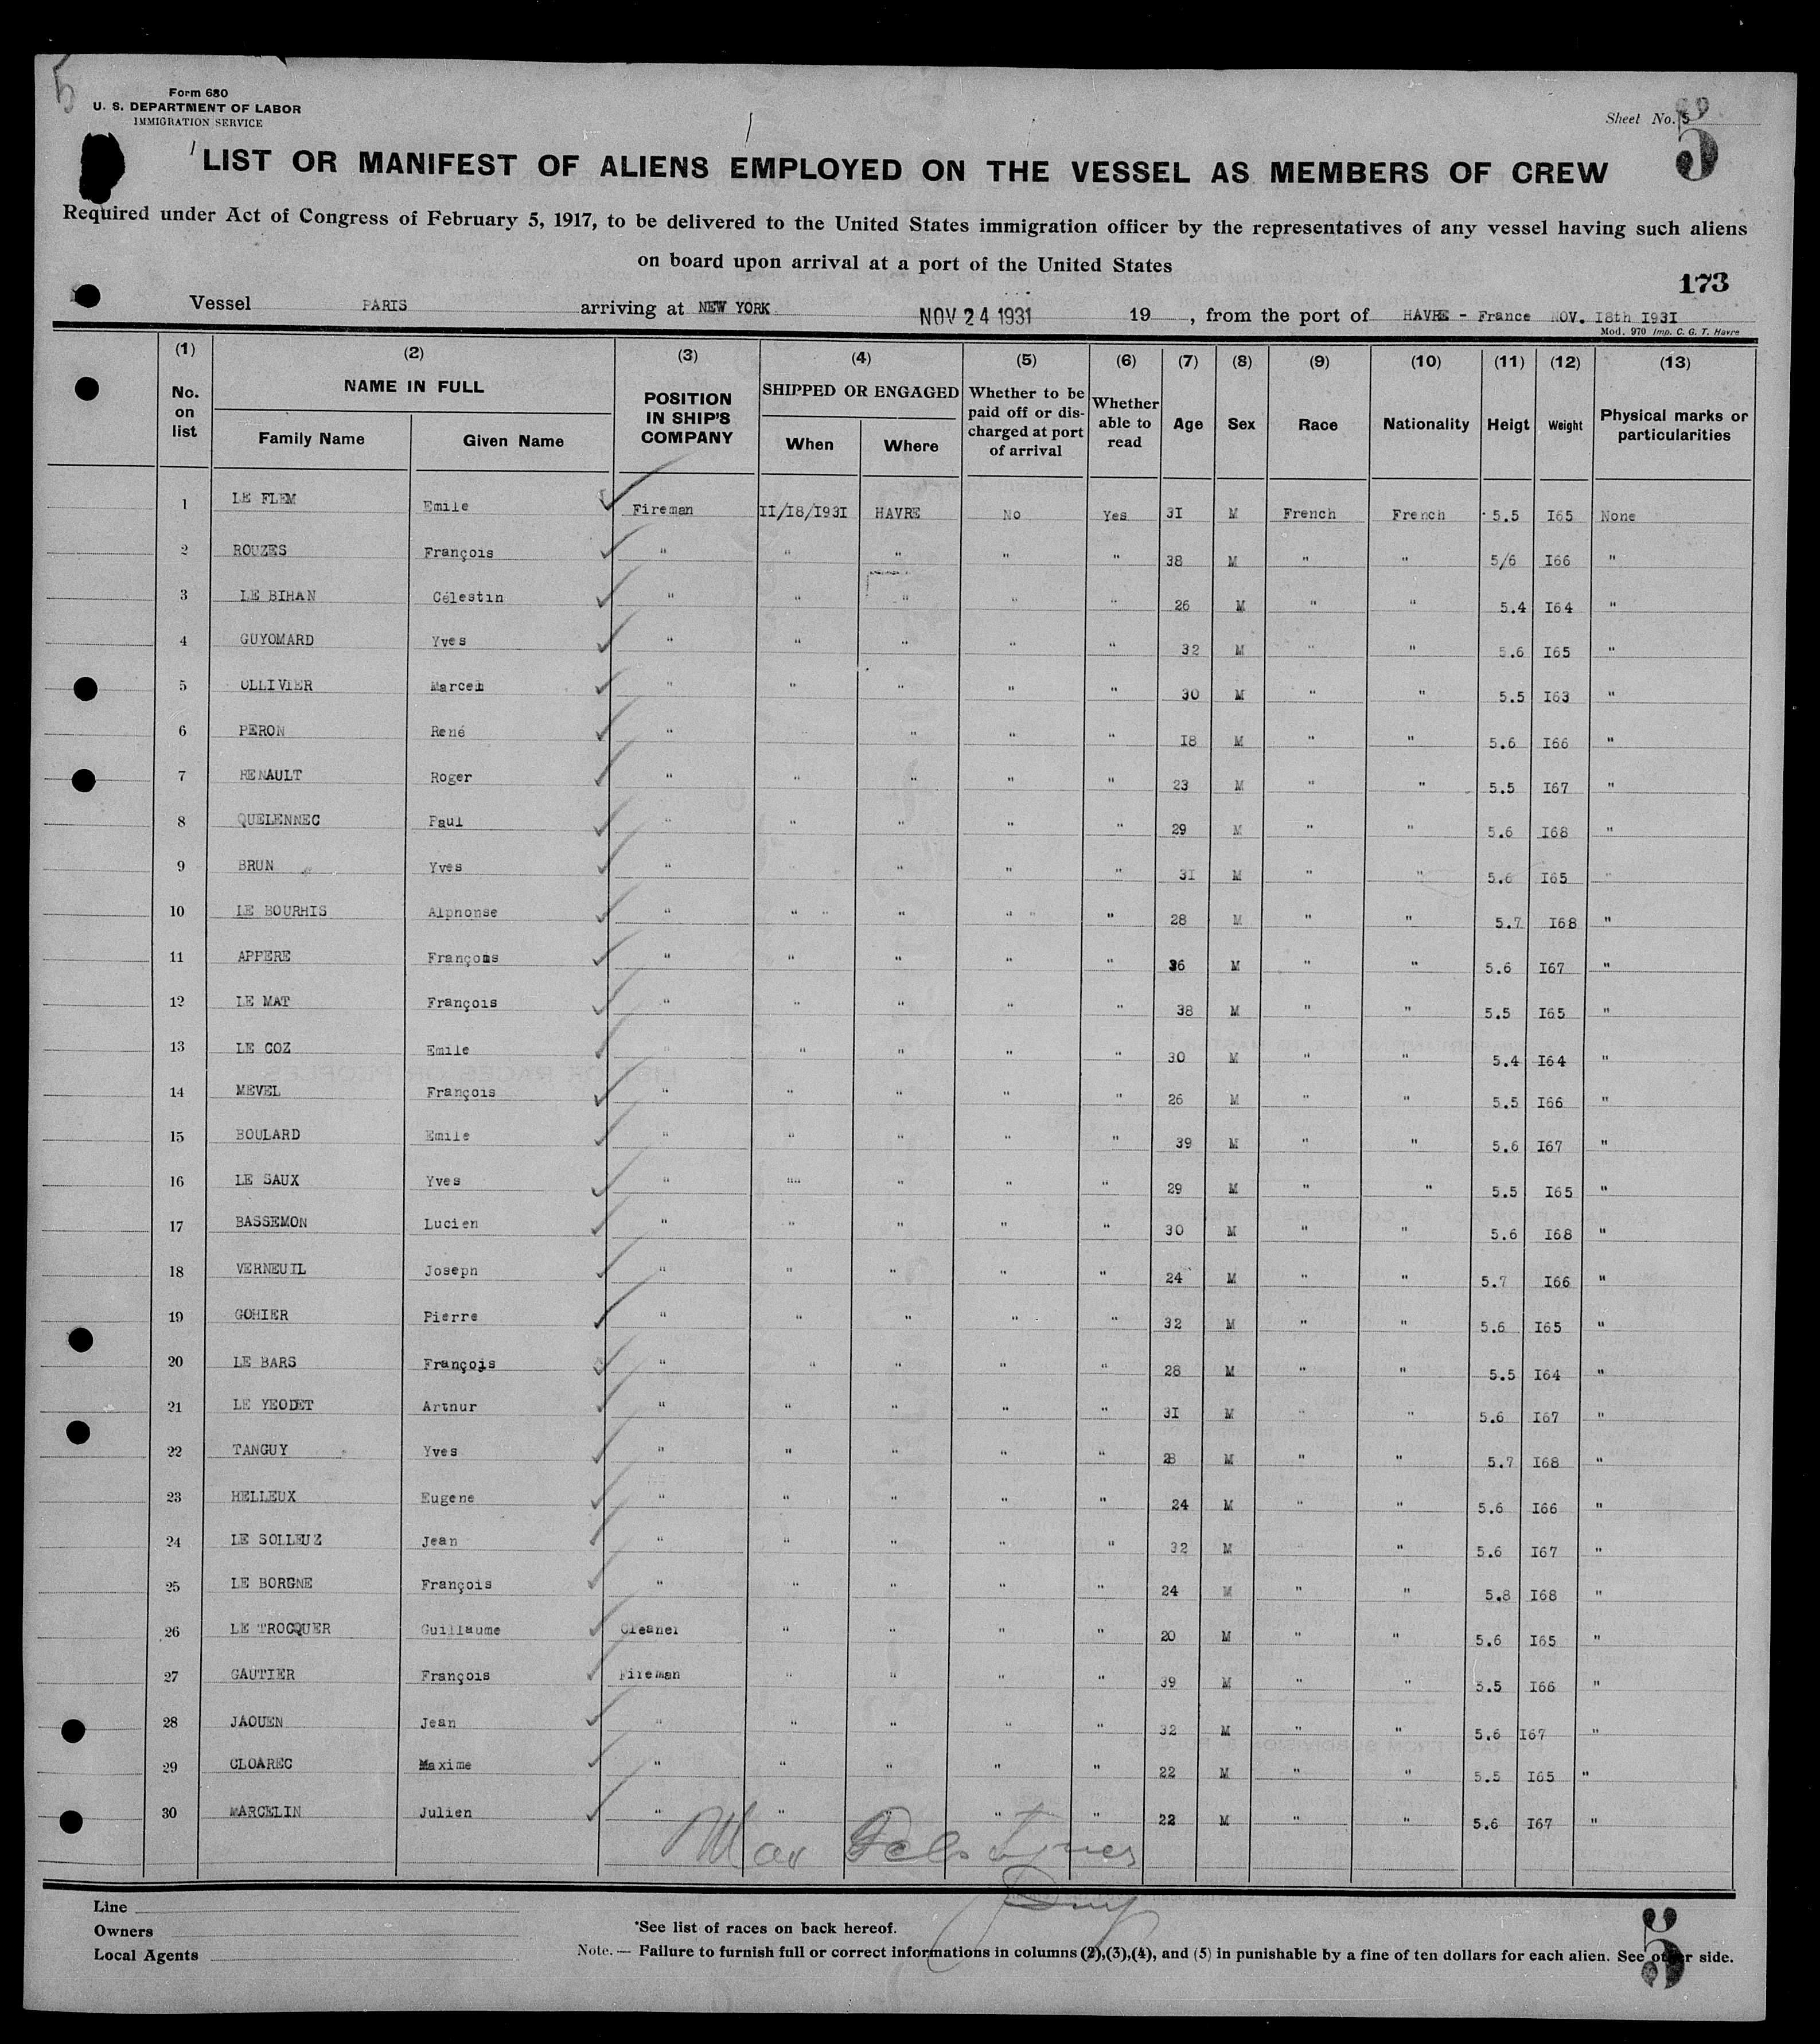 5
Form 680
U. S. DEPARTMENT OF LABOR
IMMIGRATION SERVICE
Sheet No. 5
5
LIST OR MANIFEST OF ALIENS EMPLOYED ON THE VESSEL AS MEMBERS OF CREW
Required under Act of Congress of February 5, 1917, to be delivered to the United States immigration officer by the representatives of any vessel having such aliens
on board upon arrival at a port of the United States
173
Vessel PARIS arriving at NEW YORK NOV 24 1931 19 , from the port of HAVRE - France NOV. I8th I93I
Mod. 970 Imp. C. G. T. Havre
(1) (2) (3) (4) (5) (6) (7) (8) (9) (10) (11) (12) (13)
No. on list NAME IN FULL Family Name Given Name POSITION IN SHIP'S COMPANY SHIPPED OR ENGAGED When Where Whether to be paid off or discharged at port of arrival Whether able to read Age Sex Race Nationality Heigt Weight Physical marks or particularities
1 LE FLEM Emile Fireman II/I8/I93I HAVRE No Yes 3I M French French 5.5 I65 None
2 ROUZES François " " " " " 38 M " " 5/6 I66 "
3 LE BIHAN Célestin " " " " " 26 M " " 5.4 I64 "
4 GUYOMARD Yves " " " " " 32 M " " 5.6 I65 "
5 OLLIVIER Marcel " " " " " 30 M " " 5.5 I63 "
6 PERON René " " " " I8 M " " 5.6 I66 "
7 RENAULT Roger " " " " " 23 M " " 5.5 I67 "
8 QUELENNEC Paul " " " " " 29 M " " 5.6 I68 "
9 BRUN Yves " " " " 3I M " " 5.6 I65 "
10 LE BOURHIS Alphonse " " " " " " " 28 M " " 5.7 I68 "
11 APPERE François " " " " " 36 M " " 5.6 I67 "
12 LE MAT François " " " " " 38 M " " 5.5 I65 "
13 LE COZ Emile " " " " " 30 M " " 5.4 I64 "
14 MEVEL François " " " " " 26 M " " 5.5 I66 "
15 BOULARD Emile " " " " " 39 M " " 5.6 I67 "
16 LE SAUX Yves " "" " " " 29 M " " 5.5 I65 "
17 BASSEMON Lucien " " " " " 30 M " " 5.6 I68 "
18 VERNEUIL Joseph " " " " " 24 M " " 5.7 I66 "
19 GOHIER Pierre " " " " " 32 M " " 5.6 I65 "
20 LE BARS François " " " " " 28 M " " 5.5 I64 "
21 LE YEODET Arthur " " " " " 3I M " " 5.6 I67 "
22 TANGUY Yves " " " " " 28 M " " 5.7 I68 "
23 HELLEUX Eugene " " " " " 24 M " " 5.6 I66 "
24 LE SOLLEUZ Jean " " " " " 32 M " " 5.6 I67 "
25 LE BORGNE François " " " " " 24 M " " 5.8 I68 "
26 LE TROCQUER Guillaume Cleaner " " " " 20 M " " 5.6 I65 "
27 GAUTIER François Fireman " " " " 39 M " " 5.5 I66 "
28 JAOUEN Jean " " " " " 32 M " " 5.6 I67 "
29 CLOAREC Maxime " " " " " 22 M " " 5.5 I65 "
30 MARCELIN Julien " " " " " 22 M " " 5.6 I67 "
Max
Line
Owners
Local Agents
*See list of races on back hereof.
Note. — Failure to furnish full or correct informations in columns (2),(3),(4), and (5) in punishable by a fine of ten dollars for each alien. See other side.
5